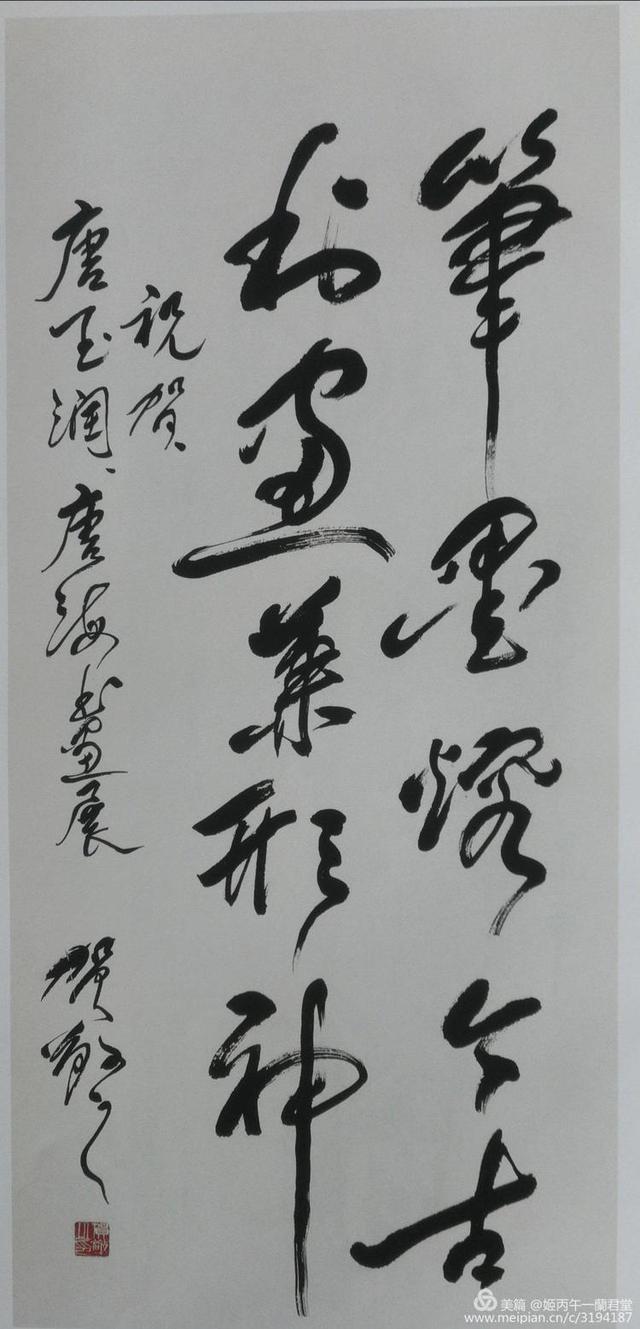 筆墨熔今古
刻畫兼形神
祝贺
唐玉润、唐海书畫展
贺敬之
美篇 @姬丙午一蘭君堂
www.meipian.cn/c/3194187